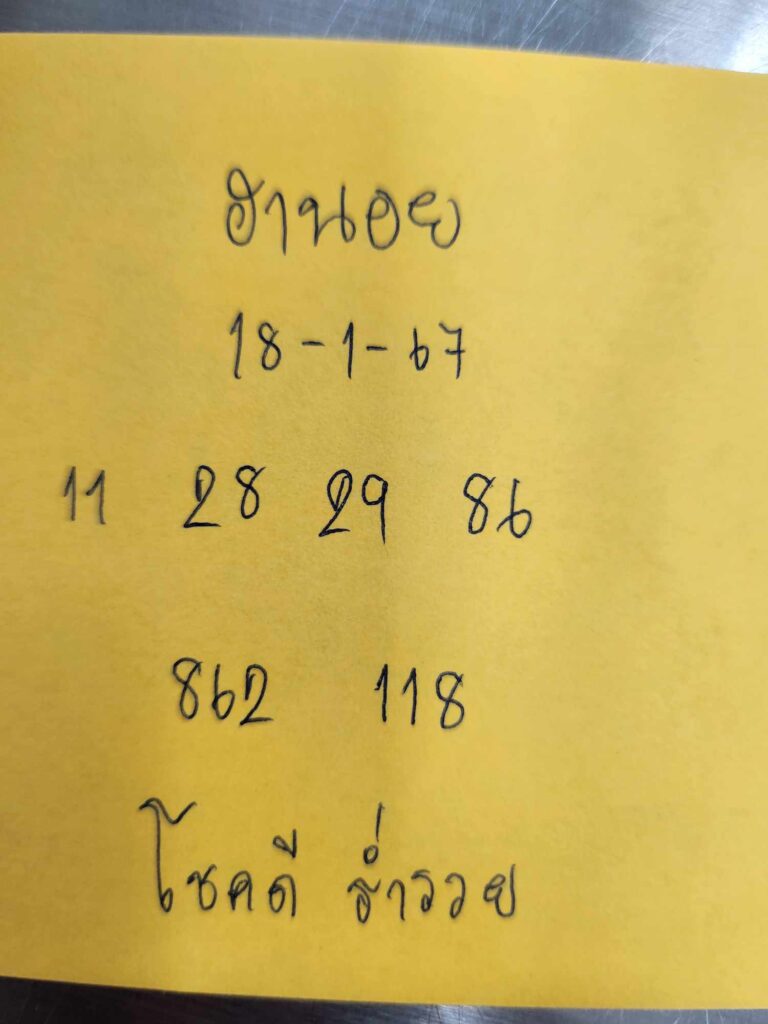 ฮานอย
18-1-67
11 28 29 86
862 118
โชคดี ร่ำรวย